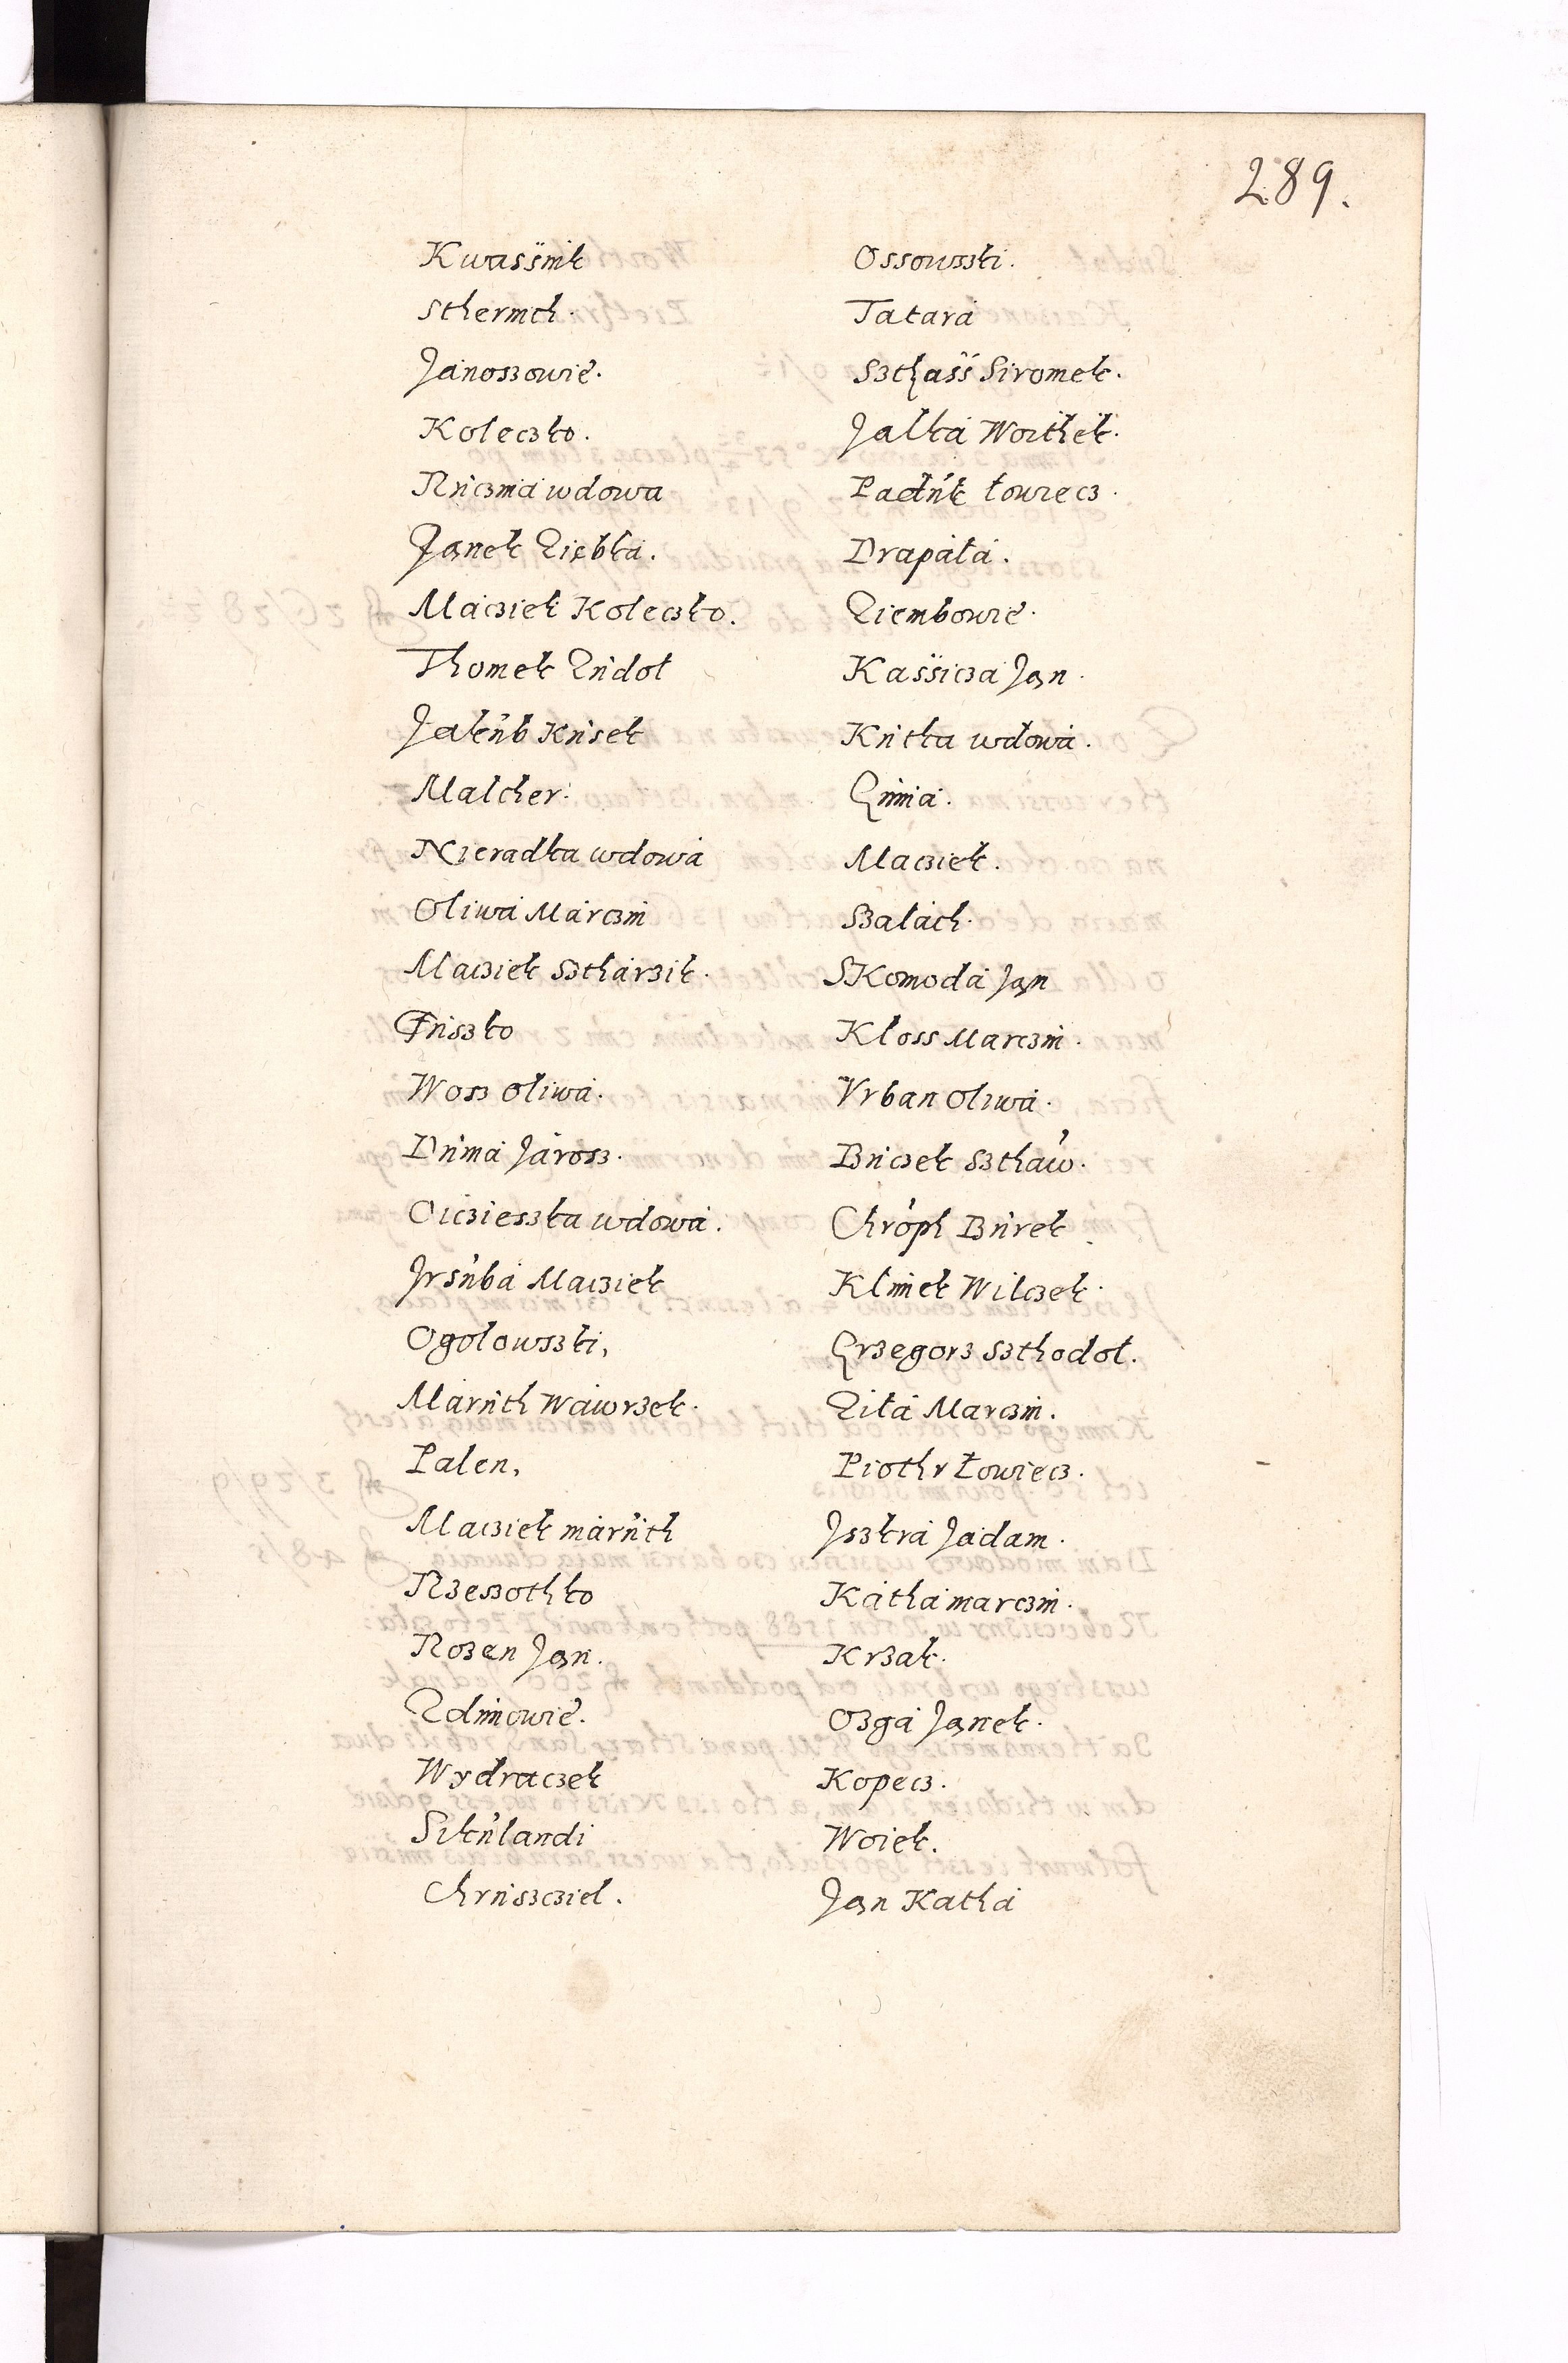 289.
Kwaśśnik
Sthernich.
Janoszowie.
Koleczko.
Ruczma wdowa
Janek Ziębka.
Macziek Koleczko.
Thomek Zudol
Jakub Kusek
Malcher.
Nieradka wdowa
Oliwa Marczin
Macziek Sztharzik.
Fuszko
Wosz Oliwa.
Duma Jarosz.
Ciczieszka wdowa.
Jrsuba Macziek
Ogolowszki,
Maruth Wawrzek.
Palen,
Macziek maruth
Rzeszothko
Rozen Jan.
Zdimowie.
Wydraczek
Sikulandi
Chrusczicl.
Ossowszki.
Tatara
Szthaśś Siromek.
Jalka Woithek.
Pacluk łowiecz.
Drapała.
Ziembowie.
Kaśśicza Jan.
Kutka wdowa.
Gnnia.
Macziek.
Szalach.
Skomoda Jan
Kloss Marczin.
Vrban Oliwa.
Buczek Szthaw.
Chroph Burek
Klimek Wilczek.
Grzegorz Szthodol.
Zila Marczin.
Piothr Łowiecz.
Jszkra Jadam.
Katha marczin.
Krzak.
Ozga Janek.
Kopecz.
Woiek.
Jan Katha